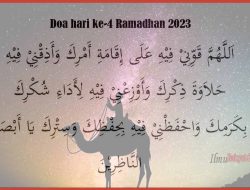 Doa hari ke-4 Ramadhan 2023
اَللَّهُمَّ قَوِّنِيْ فِيْهِ عَلَى إِقَامَةِ أَمْرِكَ وَأَذِقْنِيْ فِيْهِ
حَلَاوَةَ ذِكْرِكَ وَأَوْزِعْنِيْ فِيْهِ لِأَدَاءِ شُكْرِكَ
بِكَرَمِكَ وَاحْفَظْنِيْ فِيْهِ بِحِفْظِكَ وَسِتْرِكَ يَا أَبْصَرَ
النَّاظِرِيْنَ